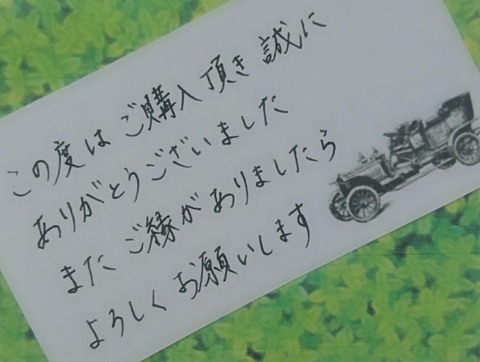 この度はご購入頂き誠に
ありがとうございました
またご縁がありましたら
よろしくお願いします